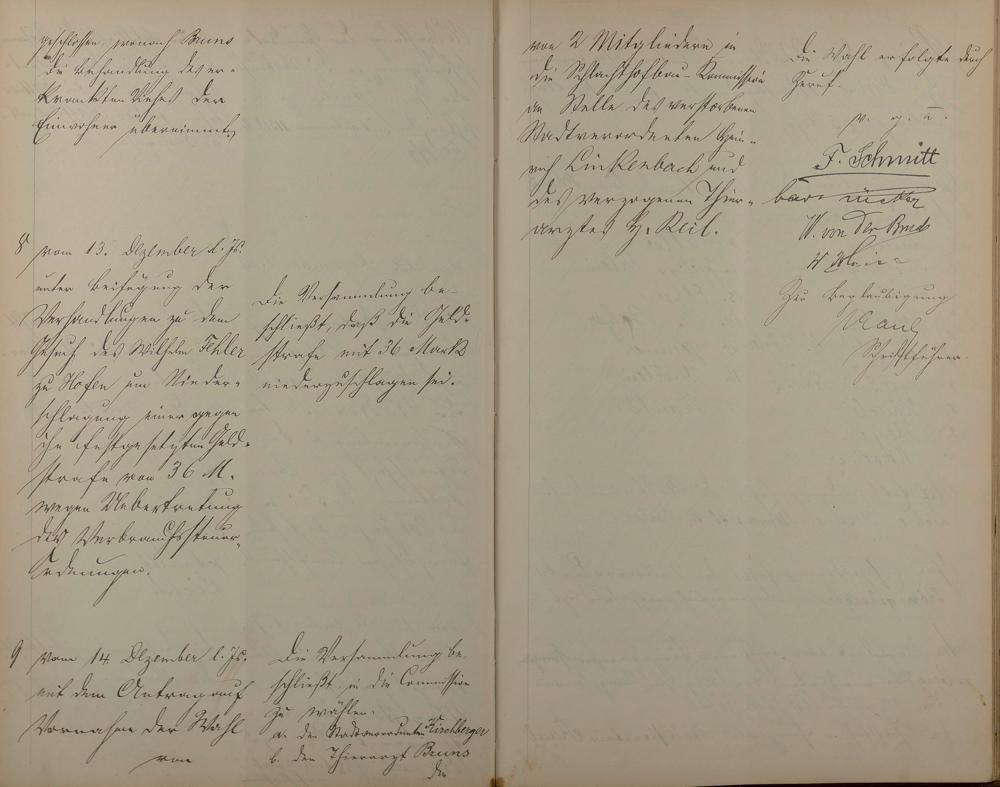 geschlossen, wonach Bruns
die Behandlung des er-
krankten Viehes der
Einwohner übernimmt.
8 vom 13. Dezember l. Js.
unter Beifügung der
Verhandlungen zu dem
Gesuch des Wilhelm Fehler
zu Hofen um Nieder-
schlagung einer gegen
ihn festgesetzten Geld-
strafe von 36 M.
wegen Uebertretung
der Verbrauchssteuer-
Ordnungen.
Die Versammlung be-
schließt, daß die Geld-
strafe mit 36 Mark
niederzuschlagen sei.
9 vom 14. Dezember l. Js.
mit dem Antrag auf
Vornahme der Wahl
von
Die Versammlung be-
schließt, in die Commission
zu wählen:
a. den Stadtverordneten Kirchberger
b. den Thierarzt Bruns
Die
von 2 Mitgliedern in
die Schlachthofbau-Kommission
an Stelle des verstorbenen
Stadtverordneten Hein-
rich Linkenbach und
des verzogenen Thier-
arztes H. Keil.
Die Wahl erfolgte durch
Zuruf.
v. g. u.
F. Schmitt
W. von der Bruck
Zur Beglaubigung
Schriftführer.